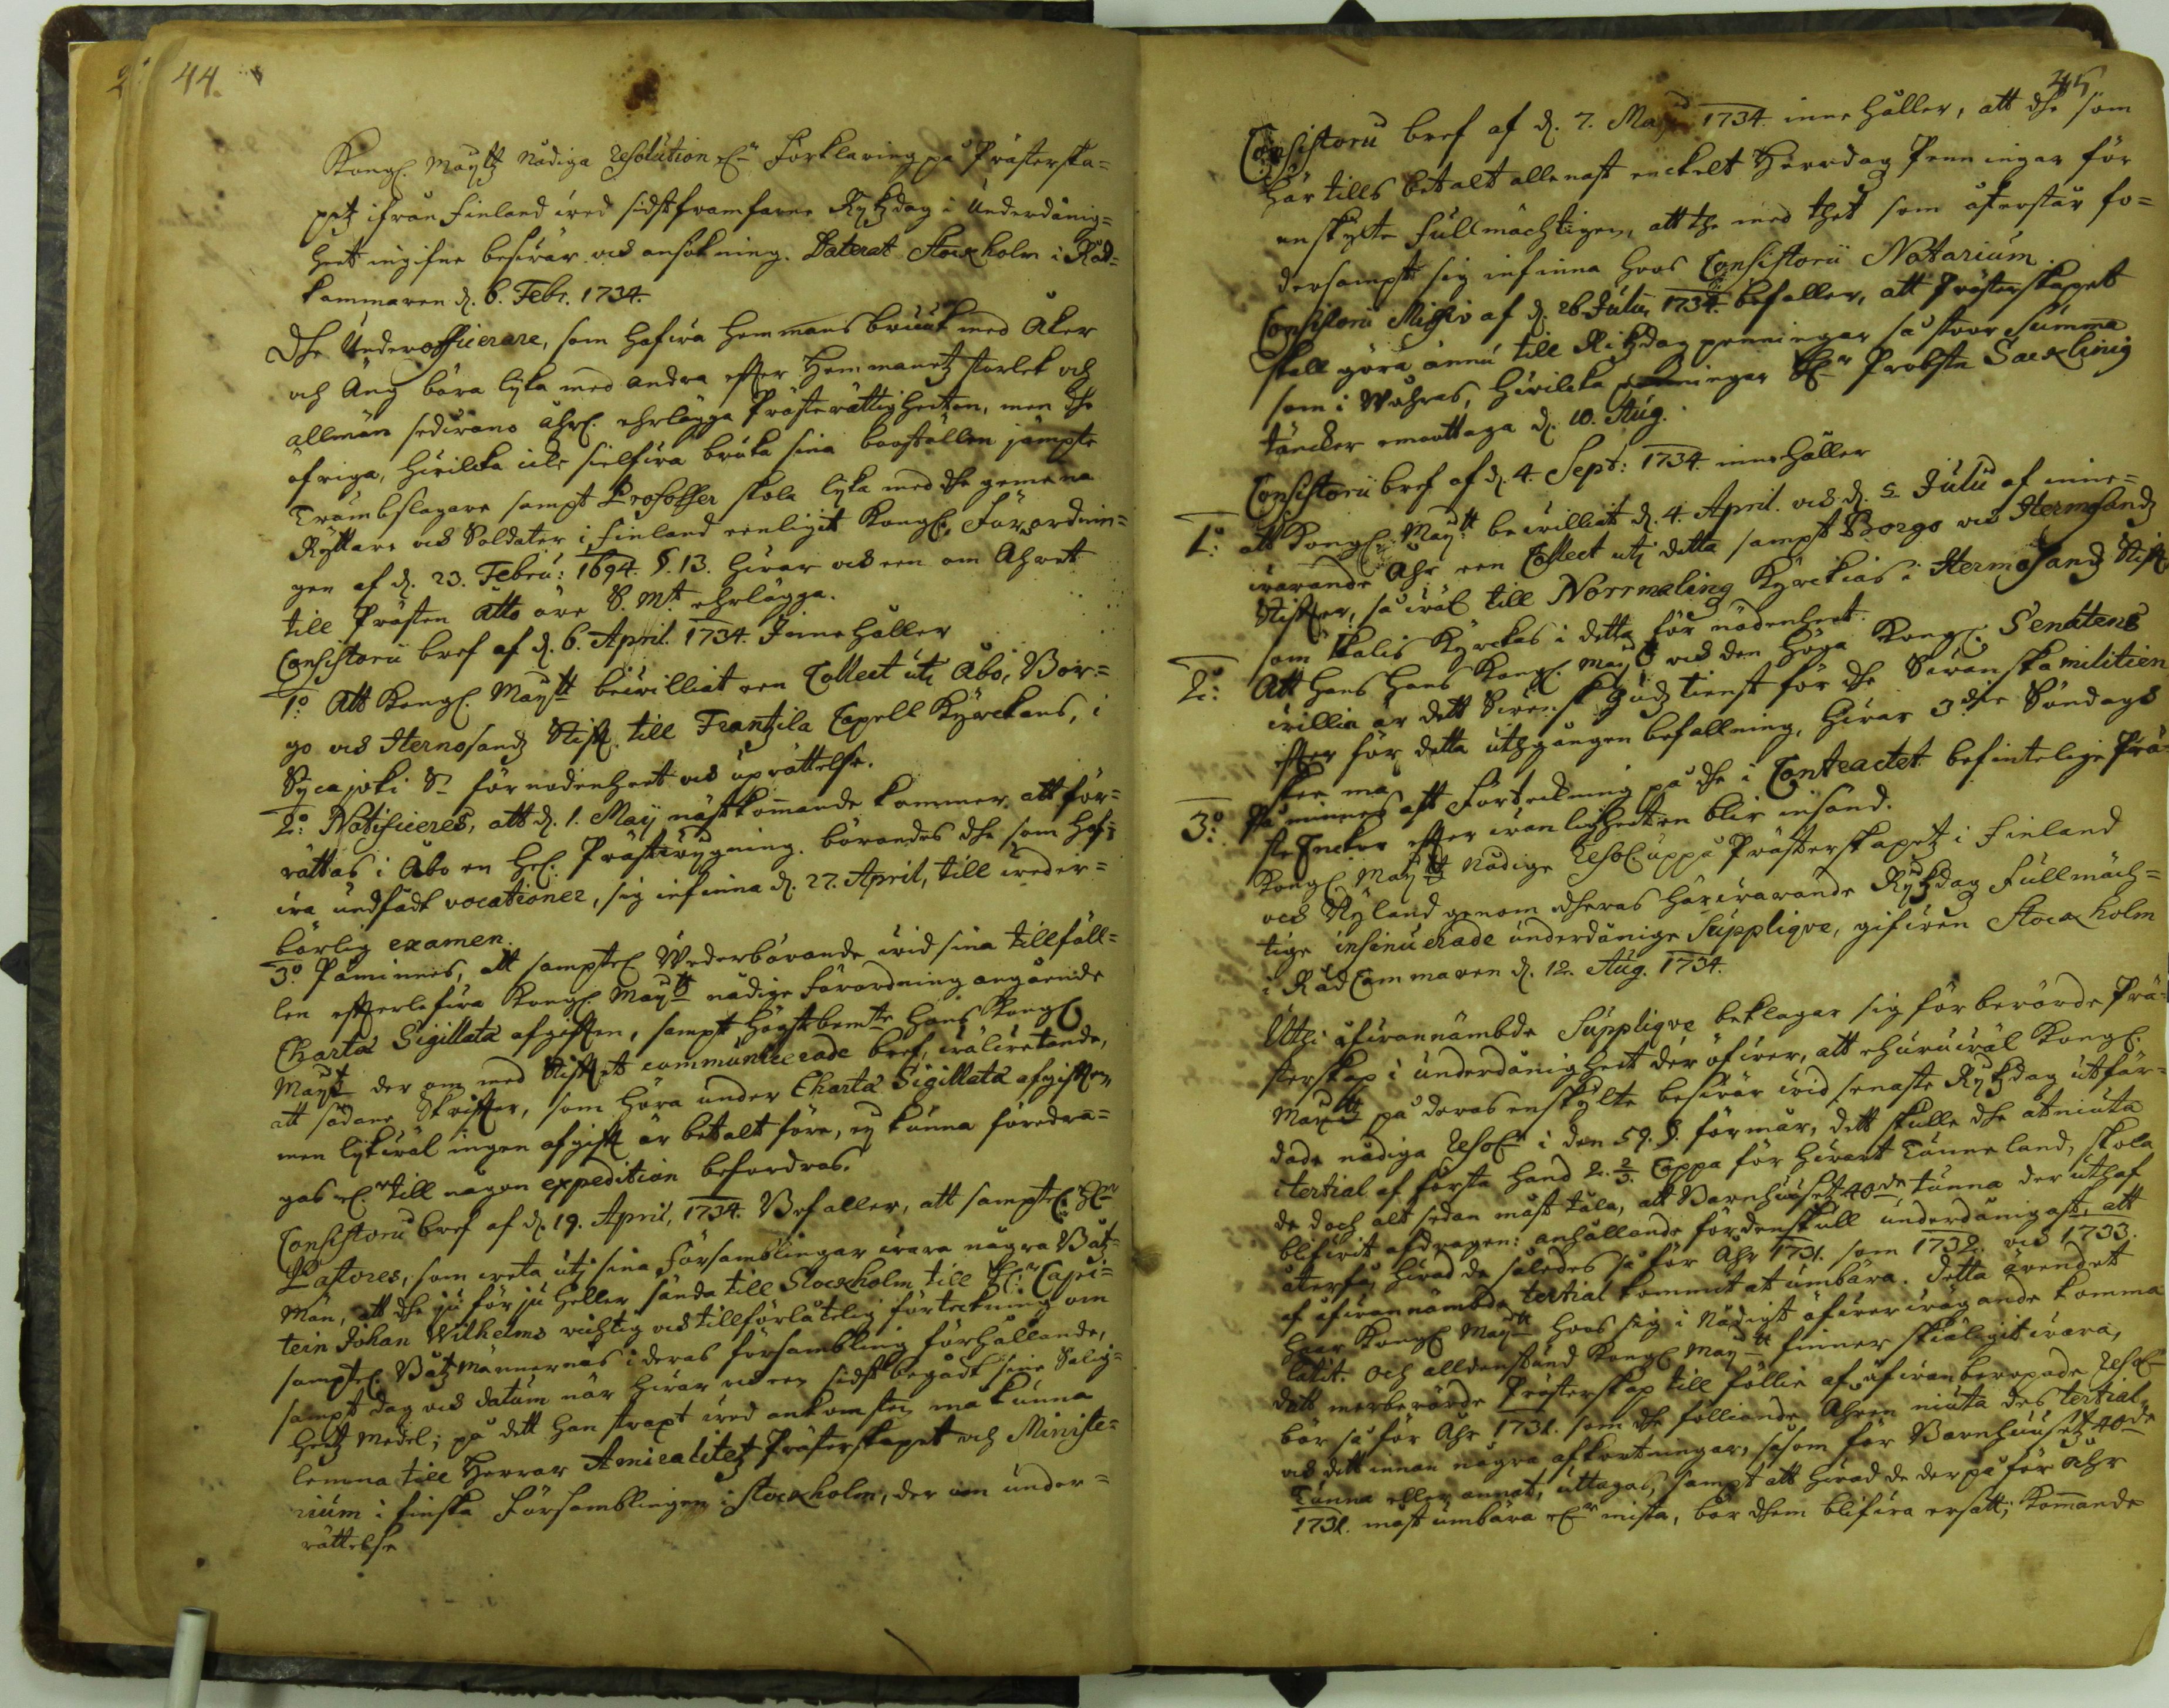 44.
Kongl. Maijtz Nådiga Resolution och Förklaring på Prästerska=
petz ifrån Finland wed sidstframfarne Rijkzdag i Underdånig=
heet ingifne beswär och ansökning. Daterat Stockholm i Råd=
kammaren d. 6. Febr. 1734.
Dhe Underofficerare, som hafwa hemmans bruuk med Åker
och Äng böra lijka med andra efter Hemmanetz storlek och
allmän sedwane åhrl. ehrlägga Prästerättigheeten, men dhe
öfriga, hwilcka icke sielfwa bruka sina boställen jämpte
Trumbslagare sampt Profosser skola lijka med dhe gemena
Ryttare och Soldater i Finland eenligit Kongl. Förordnin=
gen af d. 23. Febru: 1694. §. 13. hwar och een om Åhret
till Prästen Åtta öre S. Mt. ehrlägga.
Consistorii bref af d. 6. April. 1734. Innehåller
1o. Att Kongl. Maijtt bewilliat een Collect uti Åbo, Bor=
go och Hernosandz Stift till Frantzila Capell Kyrckans, i
Sijcajoki Sn förnödenheet och uprättelse.
2o: Notificeres, att d. 1. Maij nästkommande kommer att för=
rättas i Åbo en hel. Prästwygning. börandes dhe som haf=
wa undfådt vocationer, sig infinna d. 27. April, till weder=
börlig examen.
3o. Påminnes, att samptel. Wederbörande wid sina tillfäll=
len efterlefwa Kongl. Maijttz nådige Förordning angående
Charta Sigillata afgiften, sampt Högstbemte Hans Kongl.
Maijtz der om med Stiftet communicerade bref, wälwetande,
att sådane Skrifter, som höra under Charta Sigillata afgiften,
men lijkwäl ingen afgift är betalt före, ej kunna föredra=
gas eller till någon expedition befordras.
Consistorii bref af d. 19. April, 1734. Befaller, att samptel. Hrr
Pastores, som weta uti sina Församblingar wara några Båtz=
män, att dhe ju för ju heller sända till Stockholm till Hr Capi=
tein Johan Wilhelms richtig och tillförlåtelig förteckning om
samptel. Båtzmännernas i deras försambling förhållande,
sampt dag och datum när hwar och een sidst begådt sine Salig=
heetz medel; på dett han strapt wed ankomsten må kunna
lemna till Herrar Amiralitetz Prästerskapet och Ministe=
rium i finska Församblingen i Stockholm, der om under=
rättelse
45
Consistorii bref af d. 7. Maji 1734. innehåller, att dhe som
här tills betalt allenast enckelt Herredag Penningar för
enskylte Fullmächtigen, att the med thet som återstår fo=
dersampt sig infinna hoos Consistorii Notarium.
Consistorii Missiv af d. 26 Julii 1734. befaller, att Prästerskapet
skall göra ännu till Rikzdag penningar så stoor Summa
som i Wåhras, hwilcka penningar Hr Probsten Sacklinig
täncker emottaga d. 10. Aug.
Consistorii bref af d. 4. Sept: 1734. innehåller
1o: att Kongl. Maijtt bewilliat d. 4. April. och d. 5. Julii af inne=
warande Åhr een Collect uti detta sampt Borgo och Hermosandz
Stifter, så wäl till Norrmaling Kyrckias i Hermosandz Stift
som Kalis Kyrckas i detta förnödenheet.
2o: Att Hans Hans Kongl. Maijtz och den Höga Kongl. Senatens
willia är dett Swensk Gudz tienst för dhe Swenska militien
efter för detta uthgången befallning, hwar 3die Söndags
skee må.
3o: Påminnes att Förteckning på dhe i Contractet befintelige Prä=
ste Enckor efter wanligheeten blir insänd.
Kongl. Maijtz Nådige Resol. uppå Prästerskapetz i Finland
och Nyland genom dheras härwarande Rijkzdag Fullmäch=
tige insinuerade underdånige Supplique, gifwen Stockholm
i RådCammaren d. 12. Aug. 1734.
Uthi åfwannämbde Supplique beklagar sig förberörde Prä=
sterskap i underdånigheet der öfwer, att ehuruwäl Kongl.
Maijtt på deras enskylte beswär wid senaste Rijkzdag utfär=
dade nådiga Resol. i den 59. §. förmår, dett skulle dhe åtniuta
i tertial af första hand 2. 2/3. Cappa för hwart Tunneland, skola
de doch alt sedan måst tåla, att Barnhuusetz 40de tunna der uthaf
blifwit afdragen: anhållande fördenskull underdånigast, att
återfå hwad de således så för Åhr 1731. som 1732. och 1733.
af åfwannämbde tertial kommit at umbära. Detta ärendet
haar Kongl. Maijtt hoos sig i Nådigt öfwerwägande komma
låtit. Och alldenstund Kongl. Maijtt finner skiäligit wara,
dett merberörde Prästerskap till föllie af åfwanberopade Resol.
bör så för Åhr 1731. som dhe fölliande Åhren niuta des tertial
och dett innan några afkortningar, såsom för Barnhuusetz 40de
Tunna eller annat, uttagas, sampt att hwad de der på för åhr
1731. måst umbära och mista, bör dhem blifwa ersatt; kommande